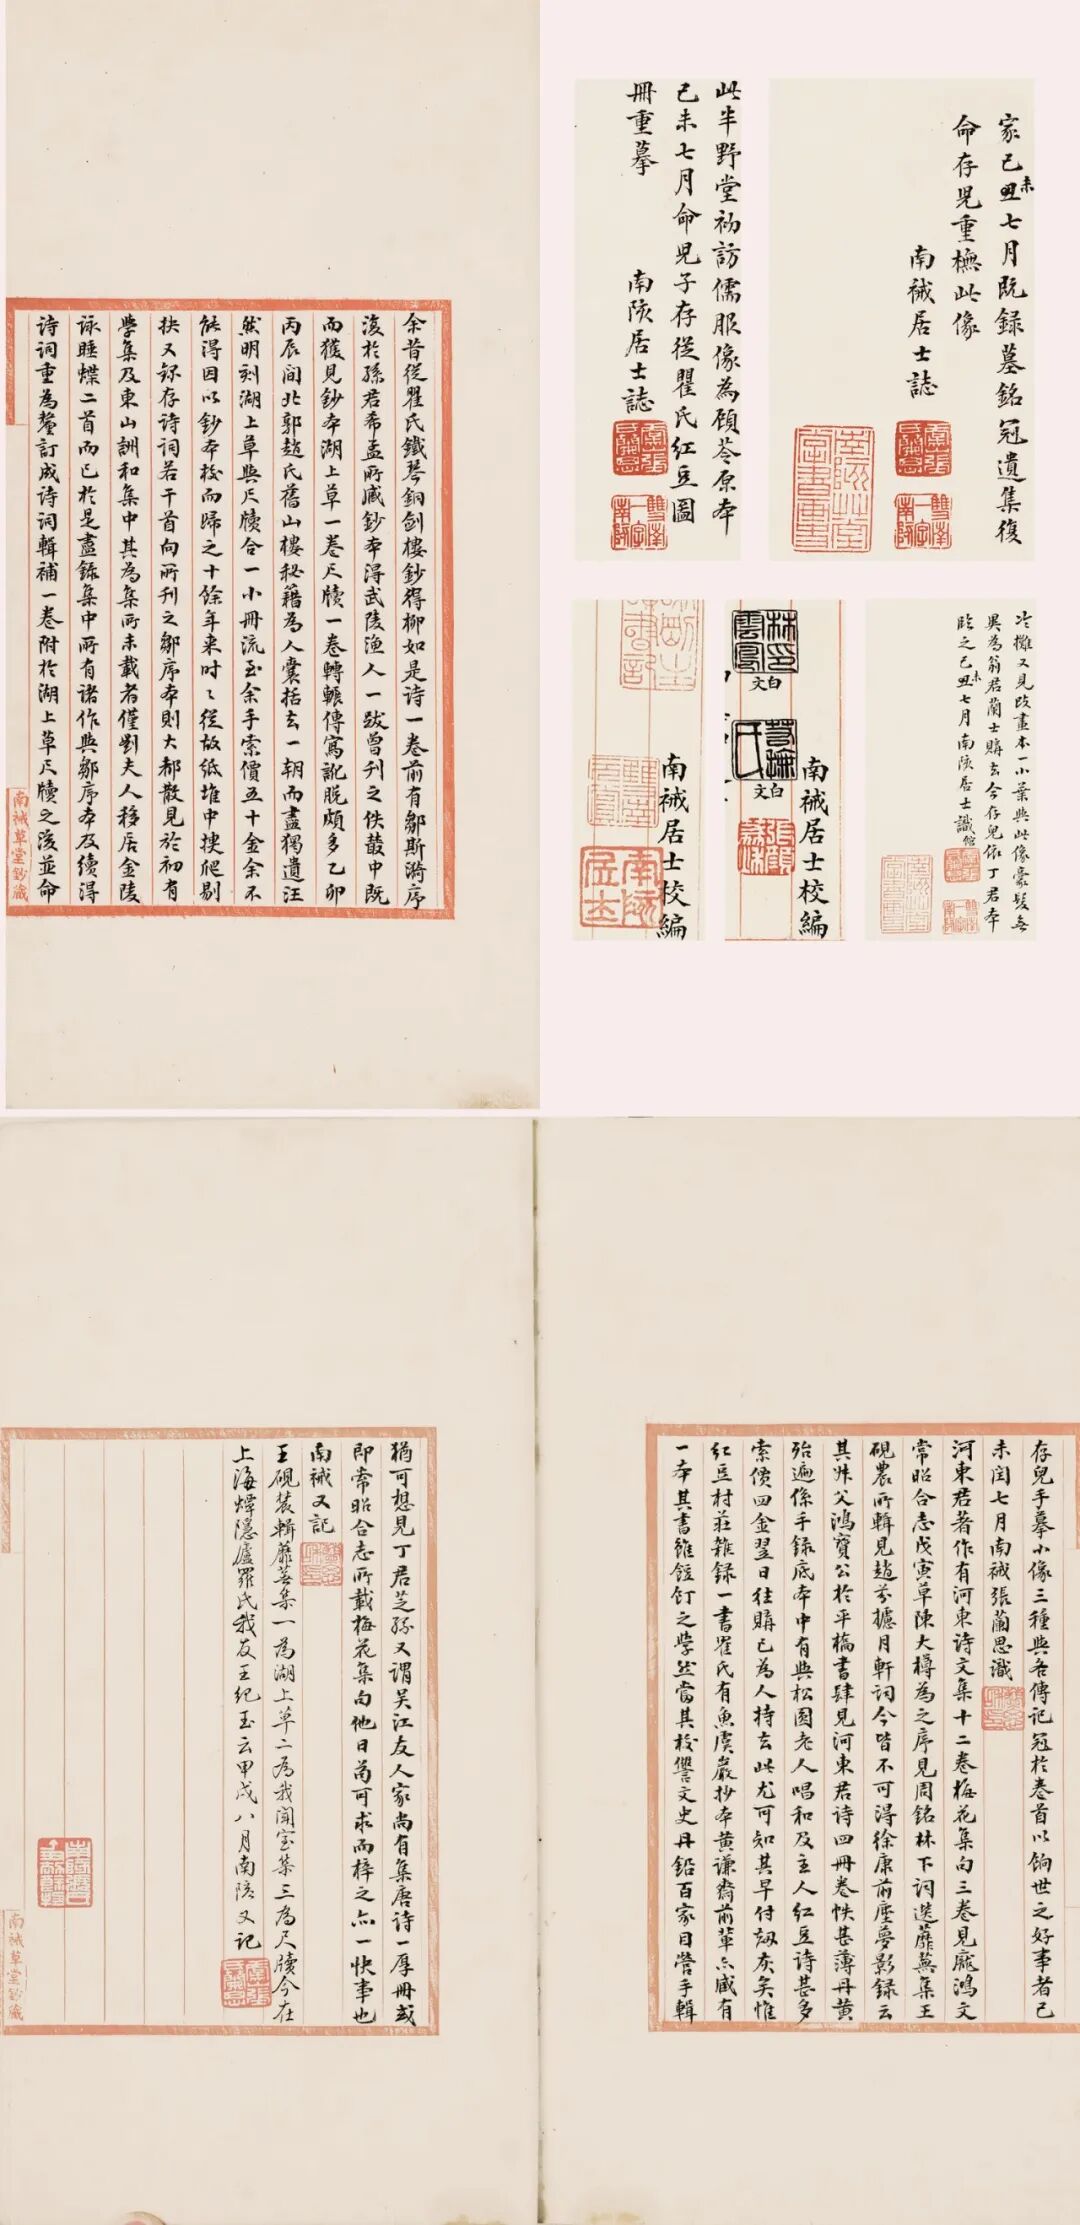 余昔從瞿氏鐵琴銅劍樓鈔得柳如是詩一卷前有鄒斯漪序
復於孫君希孟所藏鈔本得武陵漁人一跋曾刊之佚叢中既
而獲見鈔本湖上草一卷尺牘一卷轉輾傳寫訛脫頗多乙卯
丙辰間北郭趙氏舊山樓秘籍為人囊括去一朝而盡獨遺汪
然明刻湖上草與尺牘合一小冊流至余手索價五十金余不
能得因以鈔本校而歸之十餘年来时〻從故紙堆中搜爬剔
抉又録存詩詞若干首向所刊之鄒序本則大都散見於初有
學集及東山詶和集中其為集所未載者僅劉夫人移居金陵
詠睡蝶二首而已於是盡錄集中所有諸作與鄒序本及續得
詩詞重為釐訂成詩詞輯補一卷附於湖上草尺牘之後並命
南祴草堂鈔藏
家己丑未七月既録墓銘冠遺集復
命存兒重橅此像
南祴居士誌
此半野堂初訪儒服像為顧苓原本
己未七月命兒子存從瞿氏紅豆圖
冊重摹
南陔居士誌
冷攤又見改畫本一小葉與此像豪髮無
異為翁君蘭士購去今存兒依丁君本
臨之己丑未七月南陔居士識
林印雲鳳
白文
白文
南祴居士校編
南祴居士校編
南陔居士
存兒手摹小像三種與各傳記冠於卷首以餉世之好事者己
未閏七月南祴張蘭思識
河東君著作有河東詩文集十二卷梅花集句三卷見龐鴻文
常昭合志戊寅草陳大樽為之序見周銘林下詞選蘼蕪集王
硯農所輯見趙棻攄月軒詞今皆不可得徐康前塵夢影錄云
其舛父鴻寶公於平橋書肆見河東君詩四冊卷帙甚薄丹黃
殆遍係手録底本中有與松圓老人唱和及主人紅豆詩甚多
索價四金翌日往購已為人持去此尤可知其早付劫灰矣惟
紅豆村莊雜録一書瞿氏有魚虞巖抄本黃謙齋前輩亦藏有
一本其書雖餖飣之學然當其校讐文史丹鉛百家日營手輯
猶可想見丁君芝孫又謂吳江友人家尚有集唐詩一厚冊或
即常昭合志所載梅花集句他日苟可求而梓之亦一快事也
南祴又記
王硯農輯蘼蕪集一為湖上草二為我聞室集三為尺牘今在
上海蟫隱廬羅氏我友王紀玉云甲戌八月南陔又記
南祴草堂鈔藏